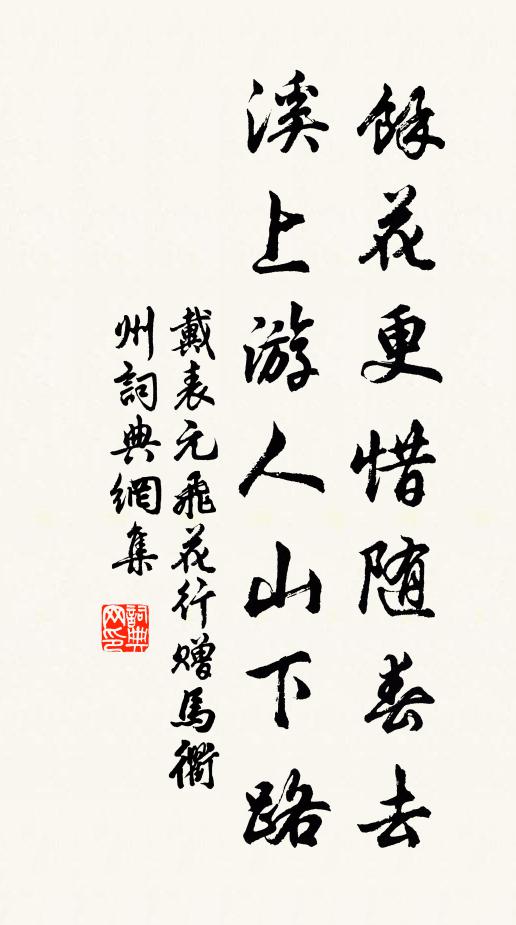 餘花更惜随春去
溪上游人山下路
戴表元飛花行赠馬衢
州詞典網集
詞典
网印